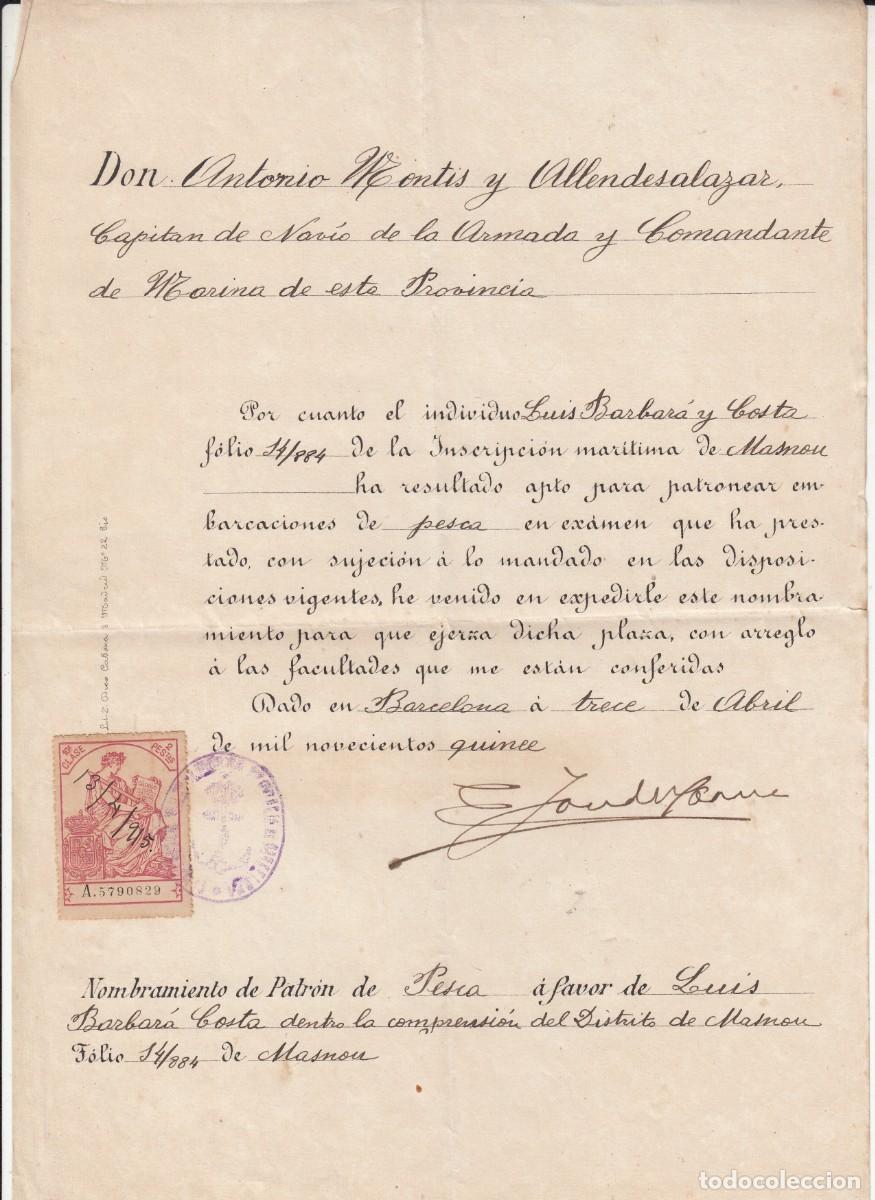 Don Antonio Montis y Allendesalazar,
Capitan de Navío de la Armada y Comandante
de Marina de esta Provincia
Por cuanto el individuo Luis Barbará y Costa
fólio 14/884 de la Inscripción marítima de Masnou
ha resultado apto para patronear em-
barcaciones de pesca en exámen que ha pres-
tado, con sujeción á lo mandado en las disposi-
ciones vigentes, he venido en expedirle este nombra-
miento para que ejerza dicha plaza, con arreglo
á las facultades que me están conferidas
Dado en Barcelona á trece de Abril
de mil novecientos quince
10ª CLASE 2 PESTAS
13/4/915.
A.5790829
Nombramiento de Patrón de Pesca á favor de Luis
Barbará Costa dentro la comprensión del Distrito de Masnou
Fólio 14/884 de Masnou
todocoleccion